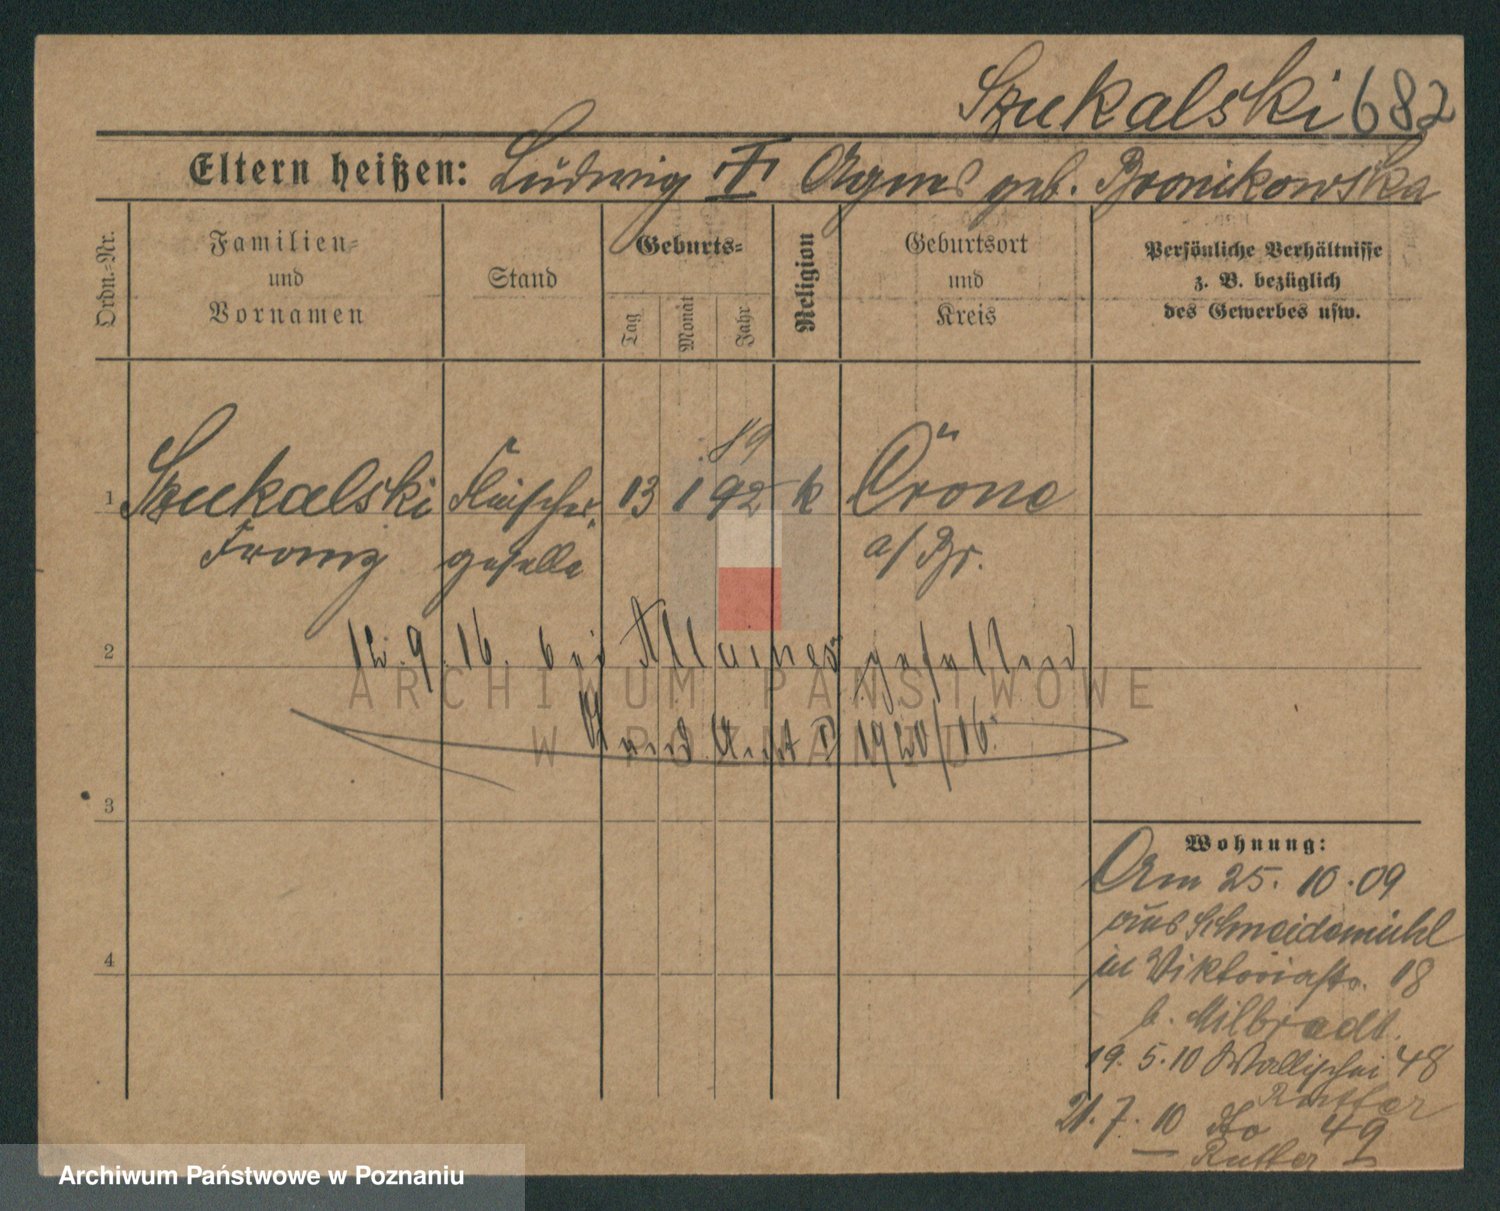 Szukalski 682
Eltern heißen: Ludwig † Agnes geb. Bronikowska
Ordn.-Nr.
Familien-
und
Vornamen
Stand
Geburts-
Tag
Monat
Jahr
Religion
Geburtsort
und
Kreis
Persönliche Verhältnisse
z. B. bezüglich
des Gewerbes usw.
89
1 Szukalski Fleischer- 13 1 92 k Crone
Franz geselle a/Br.
2 12.9.16. bei gefallen
ARCHIWUM PAŃSTWOWE
W POZNANIU
1920/16.
3
Wohnung:
Am 25.10.09
aus Schneidemühl
in Viktoriastr. 18
b. Milbradt.
4
19.5.10 Wallischei 48
21.7.10 dto 49
Archiwum Państwowe w Poznaniu